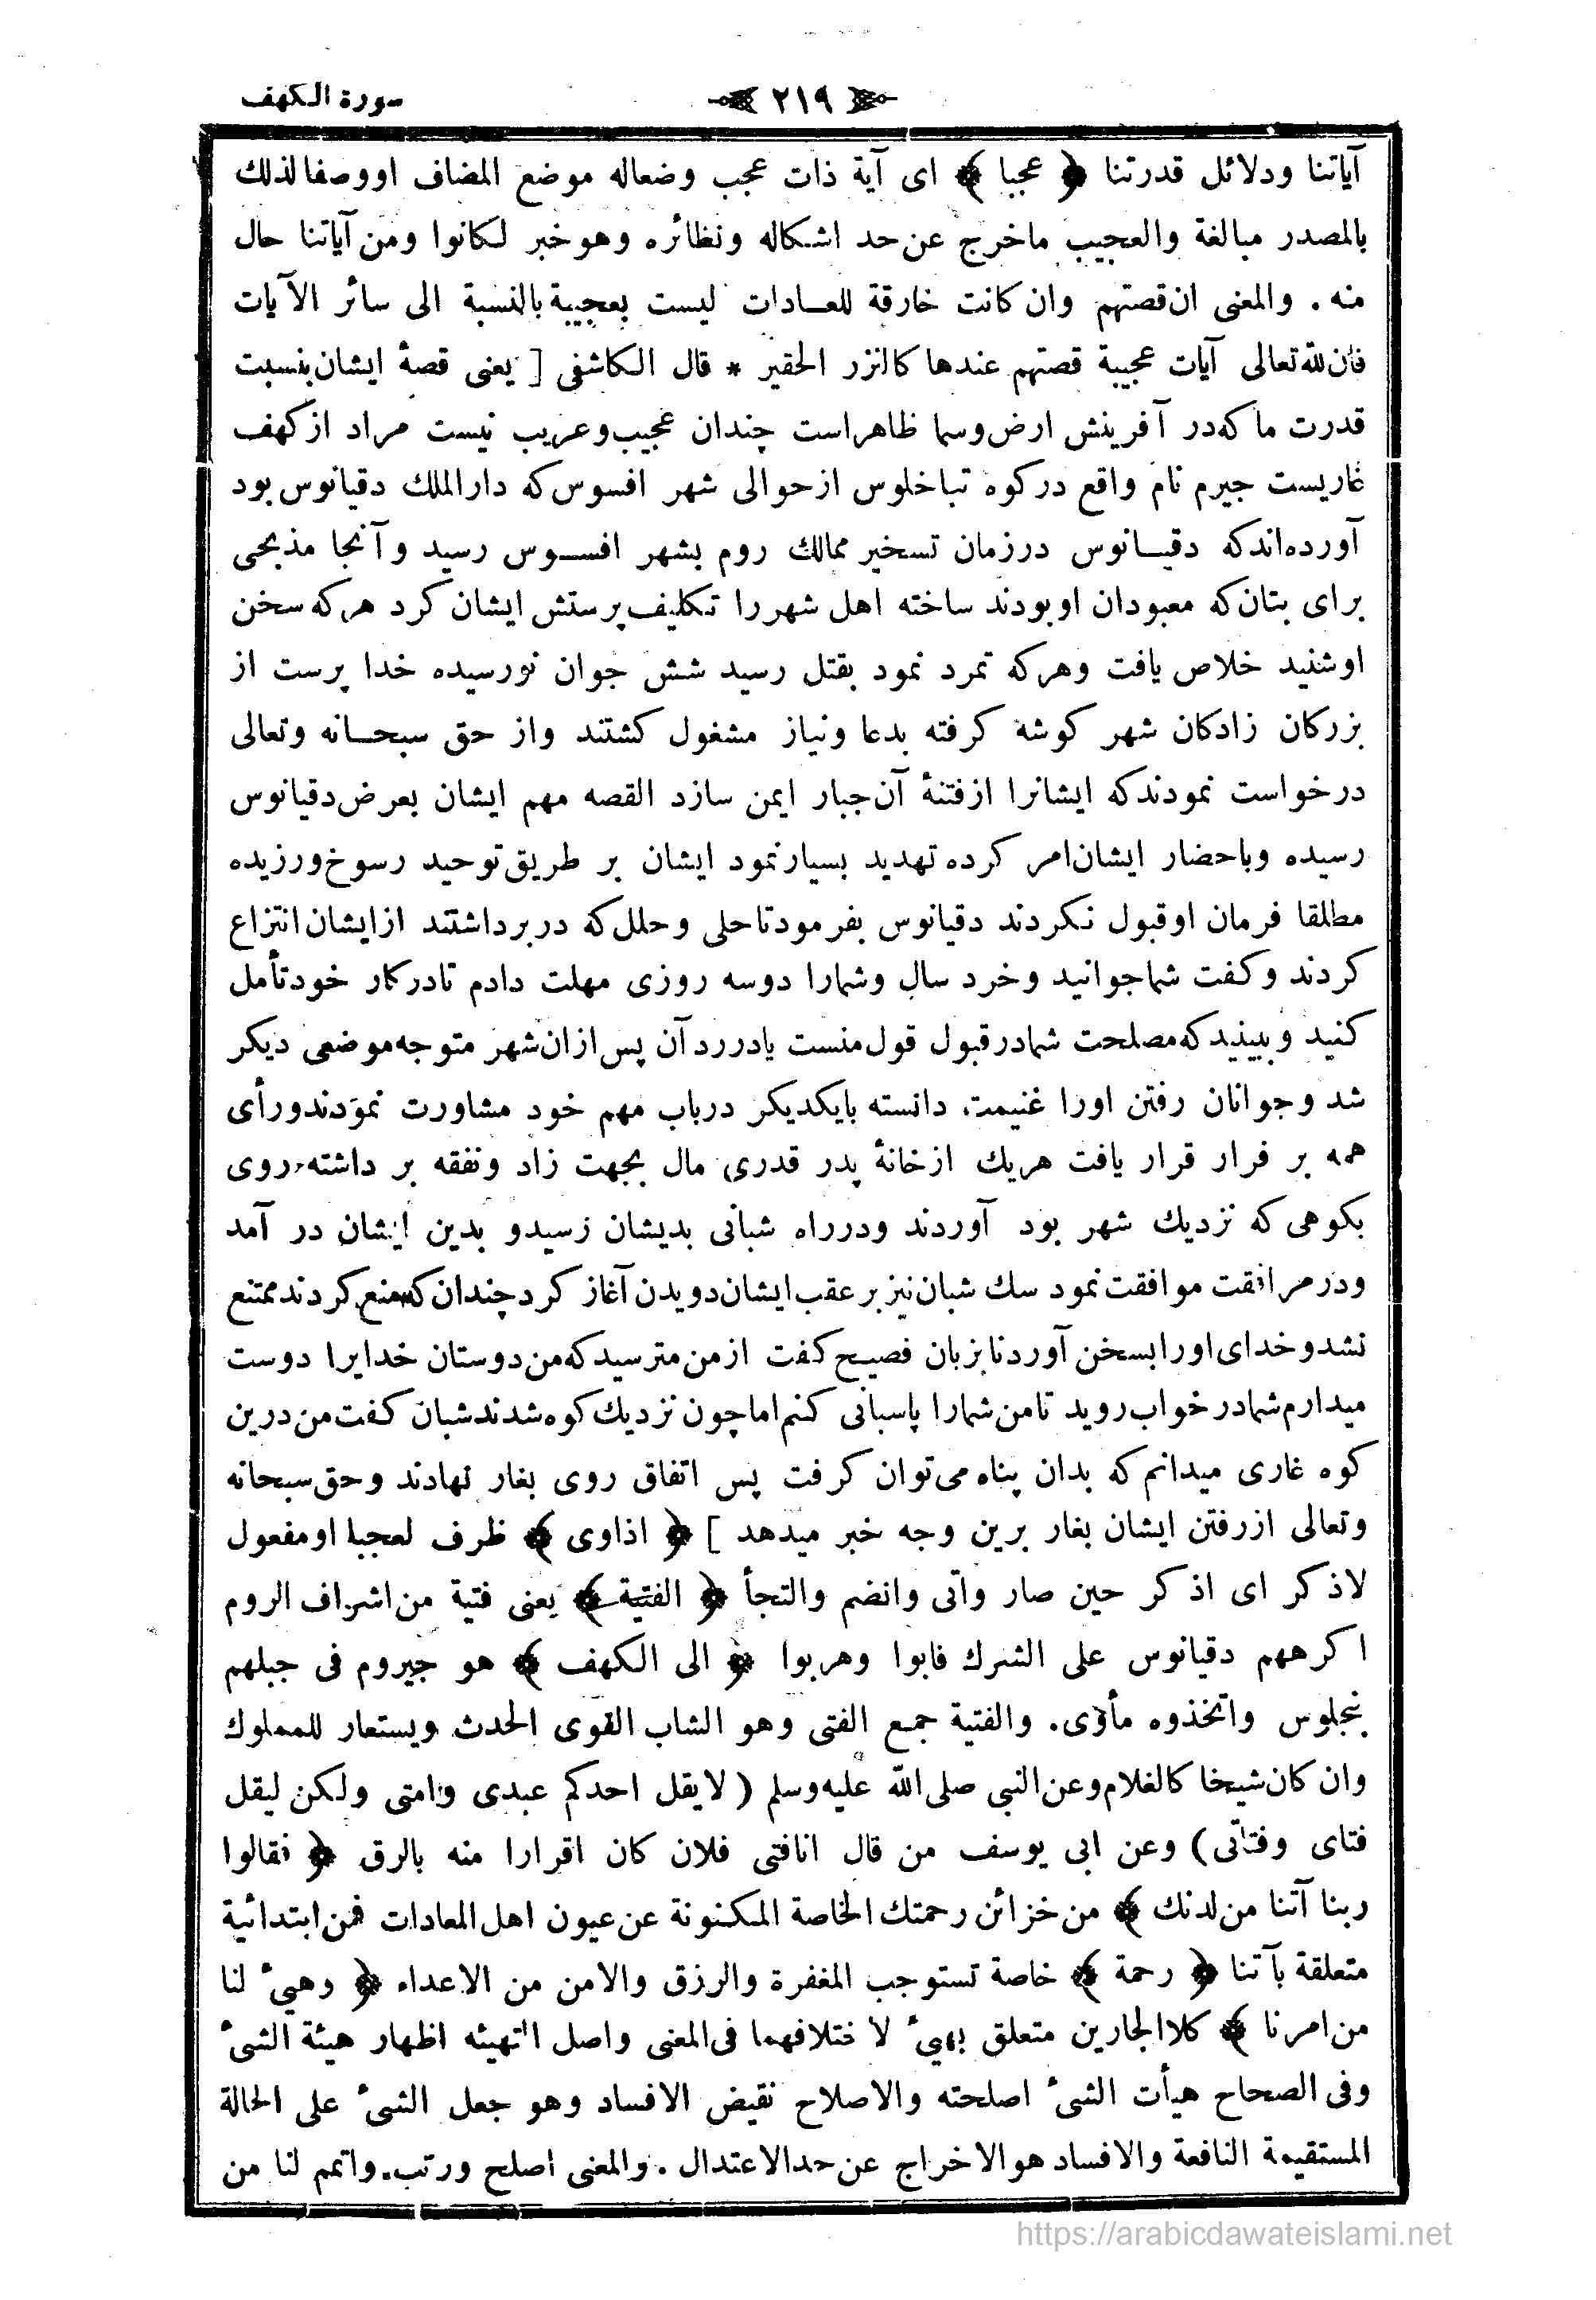 سورة الكهف ﴿ ٢١٩ ﴾
آياتنا ودلائل قدرتنا ﴿ عجبا ﴾ اى آية ذات عجب وضعاله موضع المضاف اووصفا لذلك
بالمصدر مبالغة والعجيب ماخرج عن حد اشكاله ونظائره وهو خبر لكانوا ومن آياتنا حال
منه . والمعنى ان قصتهم وان كانت خارقة للعادات ليست بعجيبة بالنسبة الى سائر الآيات
فان لله تعالى آيات عجيبة قصتهم عندها كالنزر الحقير * قال الكاشفى [ يعنى قصۀ ايشان بنسبت
قدرت ما كه در آفرينش ارض وسما ظاهر است چندان عجيب وغريب نيست مراد از كهف
غاريست جيرم نام واقع در كوه تباخلوس از حوالى شهر افسوس كه دار الملك دقيانوس بود
آورده اند كه دقيانوس در زمان تسخير ممالك روم بشهر افسوس رسيد وآنجا مذبحى
براى بتان كه معبودان او بودند ساخته اهل شهر را تكليف پرستش ايشان كرد هر كه سخن
او شنيد خلاص يافت وهر كه تمرد نمود بقتل رسيد شش جوان نورسيده خدا پرست از
بزركان زادكان شهر كوشۀ كرفته بدعا ونياز مشغول كشتند واز حق سبحانه وتعالى
درخواست نمودند كه ايشانرا از فتنۀ آن جبار ايمن سازد القصه مهم ايشان بعرض دقيانوس
رسيده وباحضار ايشان امر كرده تهديد بسيار نمود ايشان بر طريق توحيد رسوخ ورزيده
مطلقا فرمان او قبول نكردند دقيانوس بفرمود تا حلى وحلل كه در بر داشتند از ايشان انتزاع
كردند وكفت شما جوانيد وخرد سال وشمارا دوسه روزى مهلت دادم تا در كار خود تأمل
كنيد وببينيد كه مصلحت شما در قبول قول منست يا در رد آن پس ازان شهر متوجه موضعى ديكر
شد وجوانان رفتن اورا غنيمت دانسته بايكديكر درباب مهم خود مشاورت نمودند ورأى
همه بر فرار قرار يافت هريك از خانۀ پدر قدرى مال بجهت زاد ونفقه بر داشته روى
بكوهى كه نزديك شهر بود آوردند ودر راه شبانى بديشان رسيد وبدين ايشان در آمد
ودر مرافقت موافقت نمود سك شبان نيز بر عقب ايشان دويدن آغاز كرد چندان كه منع كردند ممتنع
نشد وخداى اورا بسخن آورد تا بزبان فصيح كفت از من مترسيد كه من دوستان خدايرا دوست
ميدارم شما در خواب رويد تا من شمارا پاسبانى كنم اما چون نزديك كوه شدند شبان كفت من درين
كوه غارى ميدانم كه بدان پناه مى توان كرفت پس اتفاق روى بغار نهادند وحق سبحانه
وتعالى از رفتن ايشان بغار برين وجه خبر ميدهد ] ﴿ اذاوى ﴾ ظرف لعجبا او مفعول
لاذكر اى اذكر حين صار واتى وانضم والتجأ ﴿ الفتية ﴾ يعنى فتية من اشراف الروم
اكرههم دقيانوس على الشرك فابوا وهربوا ﴿ الى الكهف ﴾ هو جيروم فى جبلهم
بنجلوس واتخذوه مأوى. والفتية جمع الفتى وهو الشاب القوى الحدث ويستعار للمملوك
وان كان شيخا كالغلام وعن النبى صلى الله عليه وسلم ( لايقل احدكم عبدى وامتى ولكن ليقل
فتاى وفتاتى) وعن ابى يوسف من قال انا فتى فلان كان اقرارا منه بالرق ﴿ فقالوا
ربنا آتنا من لدنك ﴾ من خزائن رحمتك الخاصة المكنونة عن عيون اهل المعادات فمن ابتدائية
متعلقة بآتنا ﴿ رحمة ﴾ خاصة تستوجب المغفرة والرزق والامن من الاعداء ﴿ وهيئ لنا
من امرنا ﴾ كلا الجارين متعلق بهيئ لاختلافهما فى المعنى واصل التهيئه اظهار هيئة الشىء
وفى الصحاح هيأت الشىء اصلحته والاصلاح نقيض الافساد وهو جعل الشىء على الحالة
المستقيمة النافعة والافساد هو الاخراج عن حد الاعتدال . والمعنى اصلح ورتب واتمم لنا من
https://arabicdawateislami.net